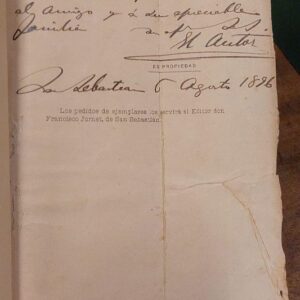 al Amigo y á su apreciable
familia
El Autor
ES PROPIEDAD
San Sebastian 6 Agosto 1896
Los pedidos de ejemplares los servirá el Editor don
Francisco Jornet, de San Sebastián.